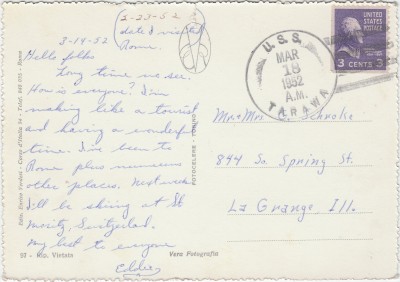 3-23-52
date I visited
Rome.
3-14-52
Hello folks
Long time no see.
How is everyone? I'm
making like a tourist
and having a wonderful
time. I've been to
Rome plus numerous
other places. Next week
I'll be skiing at St
Moritz, Switzerland.
My best to everyone
97 - Rip. Vietata
Vera Fotografia
FOTOCELERE - TORINO
U.S.S.
MAR
18
1952
A.M.
TARAWA
UNITED STATES
POSTAGE
3 CENTS 3
Mr. & Mrs
844 So. Spring St.
La Grange, Ill.